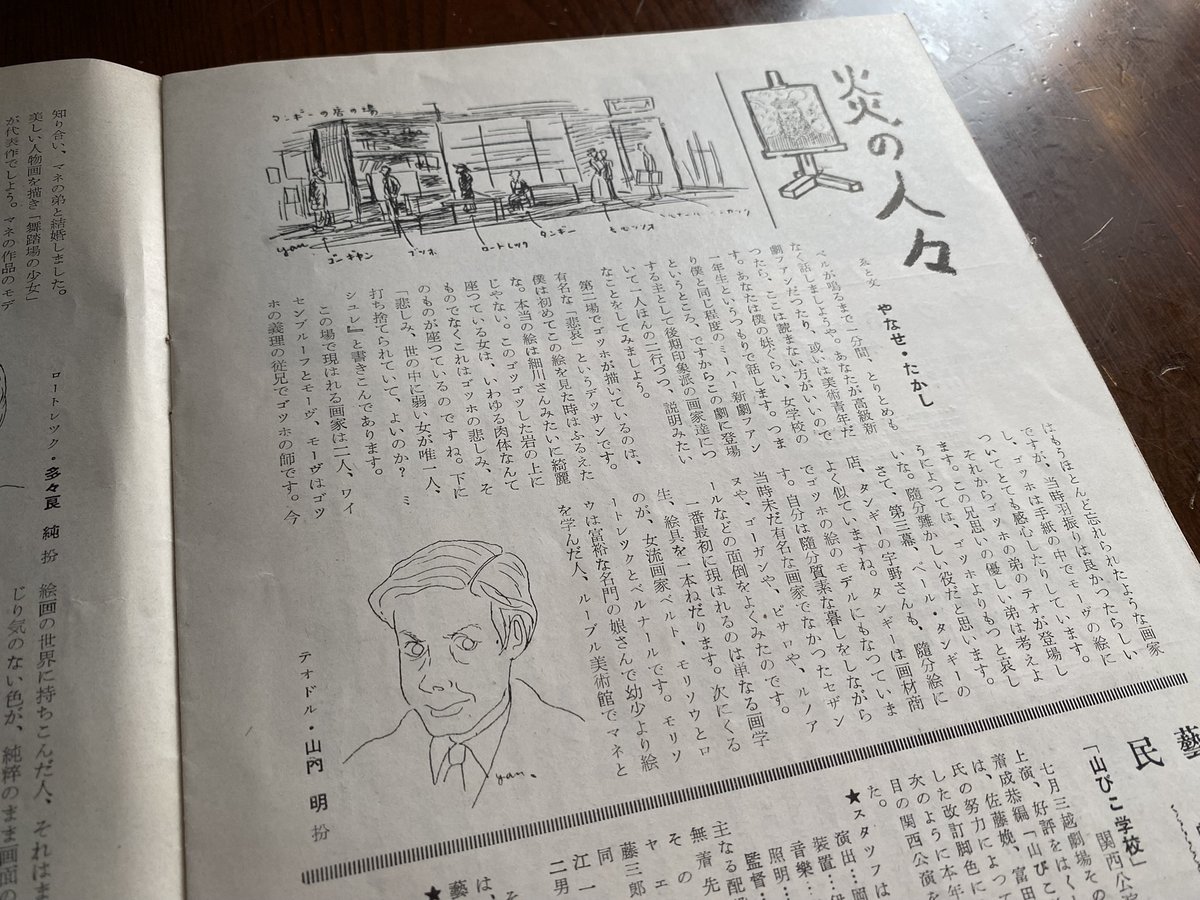 炎の人々
ゑと文
やなせ・たかし
タンギーの店の場
yan
ゴーギャン
ロートレック
タンギー
モリソウ
ベルが鳴るまで一分間、とりとめも
なく話しましようや。あなたが高級新
劇ファンだつたり、或いは美術青年だ
つたら、ここは読まない方がいいので
す。あなたは僕の妹ぐらい、女学校の
一年生というつもりで話します。つま
り僕と同じ程度のミーハー新劇ファン
というところ、ですからこの劇に登場
する主として後期印象派の画家達につ
いて一人ほんの二行づつ、説明みたい
なことをしてみましよう。
第二場でゴッホが描いているのは、
有名な「悲哀」というデッサンです。
僕は初めてこの絵を見た時はふるえた
な。本当の絵は細川さんみたいに綺麗
じやない。このゴツゴツした岩の上に
座つている女は、いわゆる肉体なんて
ものでなくこれはゴッホの悲しみ、そ
のものが座つているのですね。下に
「悲しみ、世の中に弱い女が唯一人、
打ち捨てられていて、よいのか? ミ
シュレ』と書きこんであります。
この場で現はれる画家は二人、ワイ
センブルーフとモーヴ、モーヴはゴッ
ホの義理の従兄でゴッホの師です。今
はもうほとんど忘れられたような画家
ですが、当時羽振りは良かつたらしい
し、ゴッホは手紙の中でモーヴの絵に
ついてとても感心したりしています。
それからゴッホの弟のテオが登場し
ます。この兄思いの優しい弟は考えよ
うによつては、ゴッホよりもつと哀し
いな。随分難かしい役だと思います。
さて、第三幕、ペール・タンギーの
店、タンギーの宇野さんも、随分絵に
よく似ていますね。タンギーは画材商
でゴッホの絵のモデルにもなつていま
す。自分は随分質素な暮しをしながら
当時未だ有名な画家でなかつたセザン
ヌや、ゴーガンや、ピサロや、ルノア
ールなどの面倒をよくみたのです。
一番最初に現はれるのは単なる画学
生、絵具を一本ねだります。次にくる
のが、女流画家ベルト、モリソウとロ
ートレックとベルナールです。モリソ
ウは富裕な名門の娘さんで幼少より絵
を学んだ人、ルーブル美術館でマネと
yan.
テオドル・山内 明 扮
知り合い、マネの弟と結婚しました。
美しい人物画を描き「舞踏場の少女」
が代表作でしよう。マネの作品のモデ
ロートレック・多々良 純 扮
絵画の世界に持ちこんだ人、それはま
じり気のない色が、純粋のまま画面の
民藝
「山びこ学校」
関西公演
七月三越劇場その
上演、好評をはく
着成恭編「山びこ
は、佐藤娩、富田
氏の努力によって
した改訂脚色に
次のように本年
目の関西公演を
た。
★スタッフは
演出…岡
装置…伊
音樂…
照明…
監督…
主なる配
無着先
その
ヤエ
藤三郎
同
江一
二男
★
藝
は、
そ